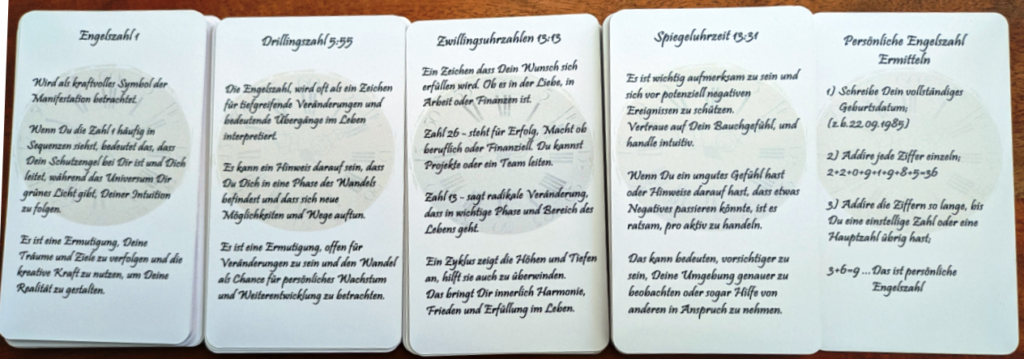 Engelszahl 1
Wird als kraftvolles Symbol der
Manifestation betrachtet.
Wenn Du die Zahl 1 häufig in
Sequenzen siehst, bedeutet das, dass
Dein Schutzengel bei Dir ist und Dich
leitet, während das Universum Dir
grünes Licht gibt, Deiner Intuition
zu folgen.
Es ist eine Ermutigung, Deine
Träume und Ziele zu verfolgen und die
kreative Kraft zu nutzen, um Deine
Realität zu gestalten.
Drillingszahl 5:55
Die Engelszahl, wird oft als ein Zeichen
für tiefgreifende Veränderungen und
bedeutende Übergänge im Leben
interpretiert.
Es kann ein Hinweis darauf sein, dass
Du Dich in eine Phase des Wandels
befindest und dass sich neue
Möglichkeiten und Wege auftun.
Es ist eine Ermutigung, offen für
Veränderungen zu sein und den Wandel
als Chance für persönliches Wachstum
und Weiterentwicklung zu betrachten.
Zwillingsuhrzahlen 13:13
Ein Zeichen dass Dein Wunsch sich
erfüllen wird. Ob es in der Liebe, in
Arbeit oder Finanzen ist.
Zahl 26 - steht für Erfolg, Macht ob
beruflich oder Finanziell. Du kannst
Projekte oder ein Team leiten.
Zahl 13 - sagt radikale Veränderung,
dass in wichtige Phase und Bereich des
Lebens geht.
Ein Zyklus zeigt die Höhen und Tiefen
an, hilft sie auch zu überwinden.
Das bringt Dir innerlich Harmonie,
Frieden und Erfüllung im Leben.
Spiegeluhrzeit 13:31
Es ist wichtig aufmerksam zu sein und
sich vor potenziell negativen
Ereignissen zu schützen.
Vertraue auf Dein Bauchgefühl, und
handle intuitiv.
Wenn Du ein ungutes Gefühl hast
oder Hinweise darauf hast, dass etwas
Negatives passieren könnte, ist es
ratsam, pro aktiv zu handeln.
Das kann bedeuten, vorsichtiger zu
sein, Deine Umgebung genauer zu
beobachten oder sogar Hilfe von
anderen in Anspruch zu nehmen.
Persönliche Engelszahl
Ermitteln
1) Schreibe Dein vollständiges
Geburtsdatum;
(z b.22.09.1985)
2) Addire jede Ziffer einzeln;
2+2+0+9+1+9+8+5=36
3.) Addire die Ziffern so lange, bis
Du eine einstellige Zahl oder eine
Hauptzahl übrig hast;
3+6=9 ...Das ist persönliche
Engelszahl